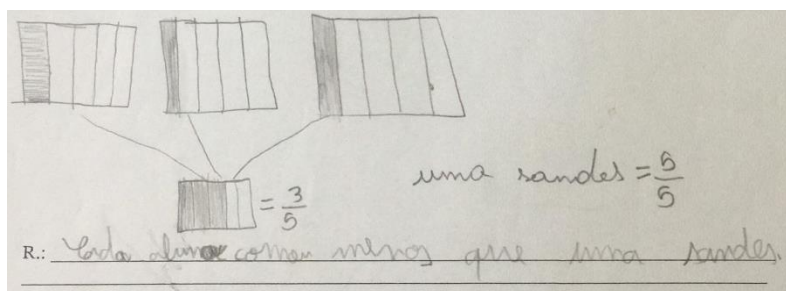 = 3/5
uma sandes = 5/5
R.: Cada aluno comeu menos que uma sandes.